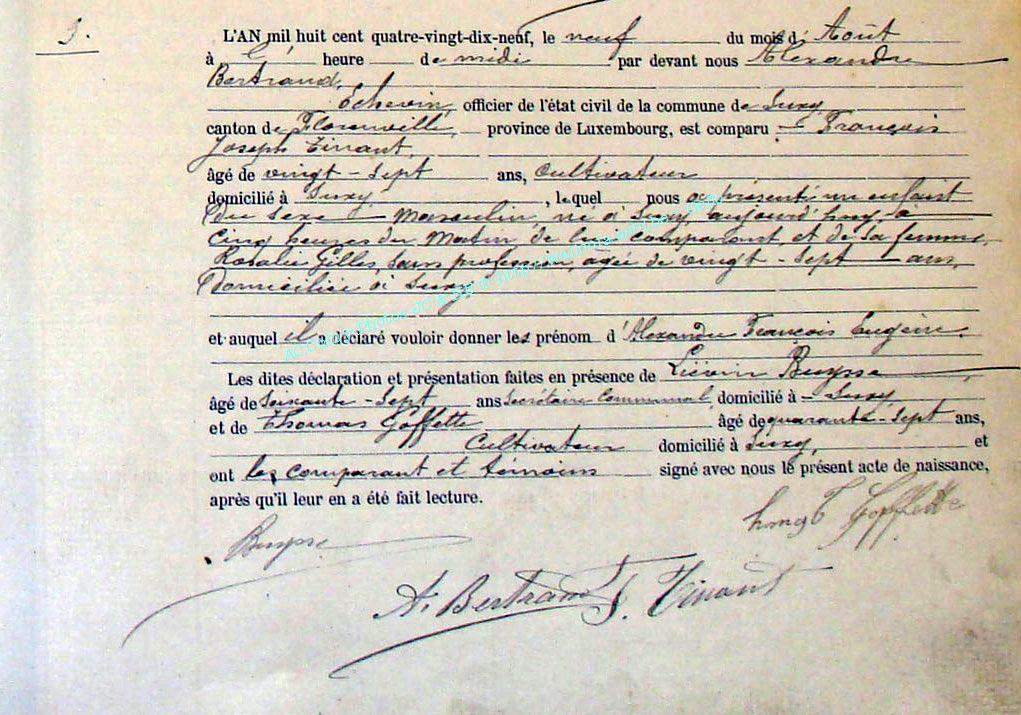 3.
L'AN mil huit cent quatre-vingt-dix-neuf, le neuf du mois d' Août
à heure de midi par devant nous Alexandre
Bertrand,
Echevin, officier de l'état civil de la commune de Suxy,
canton de Florenville, province de Luxembourg, est comparu François
Joseph Tinant,
âgé de vingt-sept ans, Cultivateur
domicilié à Suxy, lequel nous a présenté un enfant
du sexe masculin, né à Suxy, aujourd'huy, à
cinq heures du matin, de lui comparant, et de sa femme,
Rosalie Gilles, sans profession, agée de vingt-sept ans,
Domiciliée à Suxy
et auquel il a déclaré vouloir donner les prénom d'Alexandre François Eugène.
Les dites déclaration et présentation faites en présence de Liévin Buysse,
âgé de soixante-sept ans Secrétaire Communal, domicilié à Suxy
et de Thomas Goffette âgé de quarante-sept ans,
Cultivateur domicilié à Suxy, et
ont les comparant et témoins signé avec nous le présent acte de naissance,
après qu'il leur en a été fait lecture.
Goffette
Buysse
A. Bertrand F. Tinant